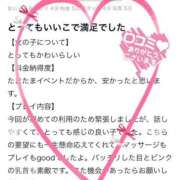 とってもいいこで満足でした
【女の子について】
とってもかわいらしい
【料金納得度】
たまたまイベントだからか、安かったと思いま
す。
【プレイ内容】
今回が初めての利用のため緊張しましたが、話し
やすくて、とっても感じの良い子で
の要望にも一生懸命応えてくれて、マッサージも
プレイも good でしたよ。パッチリした目とピンク
の乳首も素敵です。また機会があったらお願いし
口コミ
ありがとう
ございます